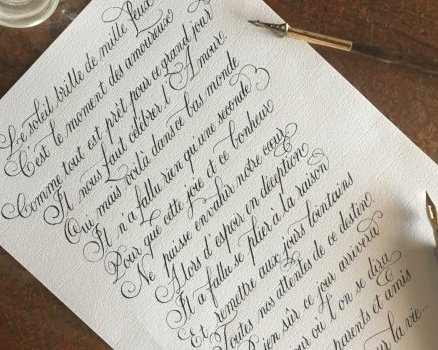 Le soleil brille de mille feux
C'est le moment des amoureux
Comme tout est prêt pour ce grand jour
Il nous faut célébrer l'Amour.
Oui mais voilà dans ce bas monde
Il n'a fallu rien qu'une seconde
Pour que cette joie et ce bonheur
Ne puisse envahir notre cœur
Alors d'espoir en déception
Il a fallu se plier à la raison
Et remettre aux jours lointains
Toutes nos attentes de ce destin.
Bien sûr ce jour arrivera
jour où l'on se dira
parents et amis
la vie...